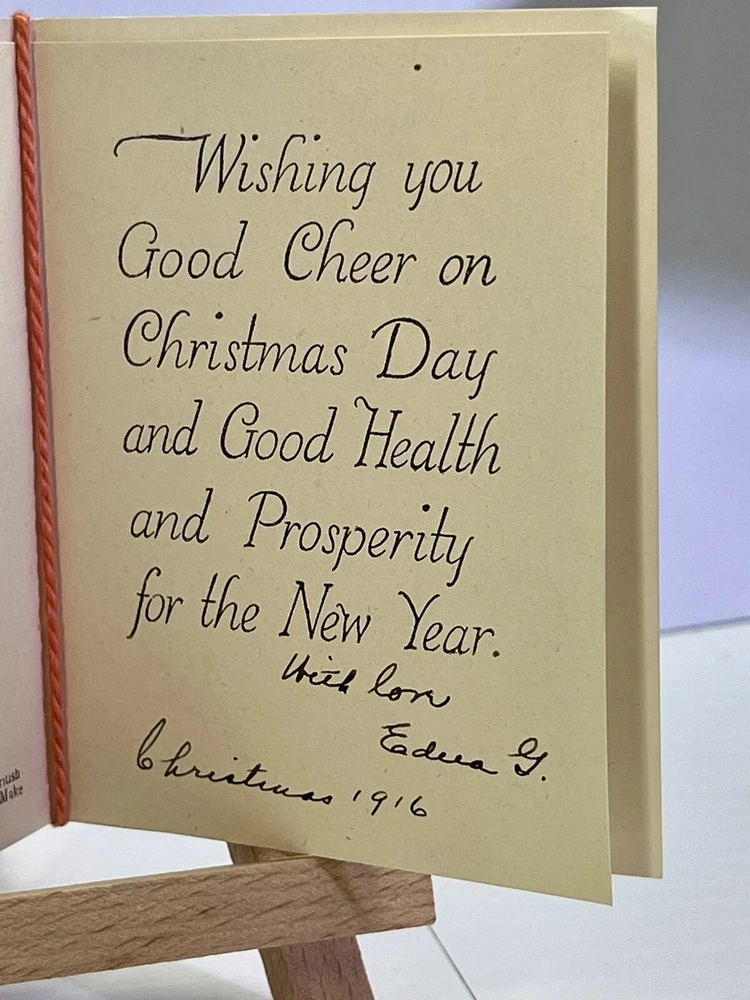 Wishing you
Good Cheer on
Christmas Day
and Good Health
and Prosperity
for the New Year.
With love
Edna G.
Christmas 1916
Make